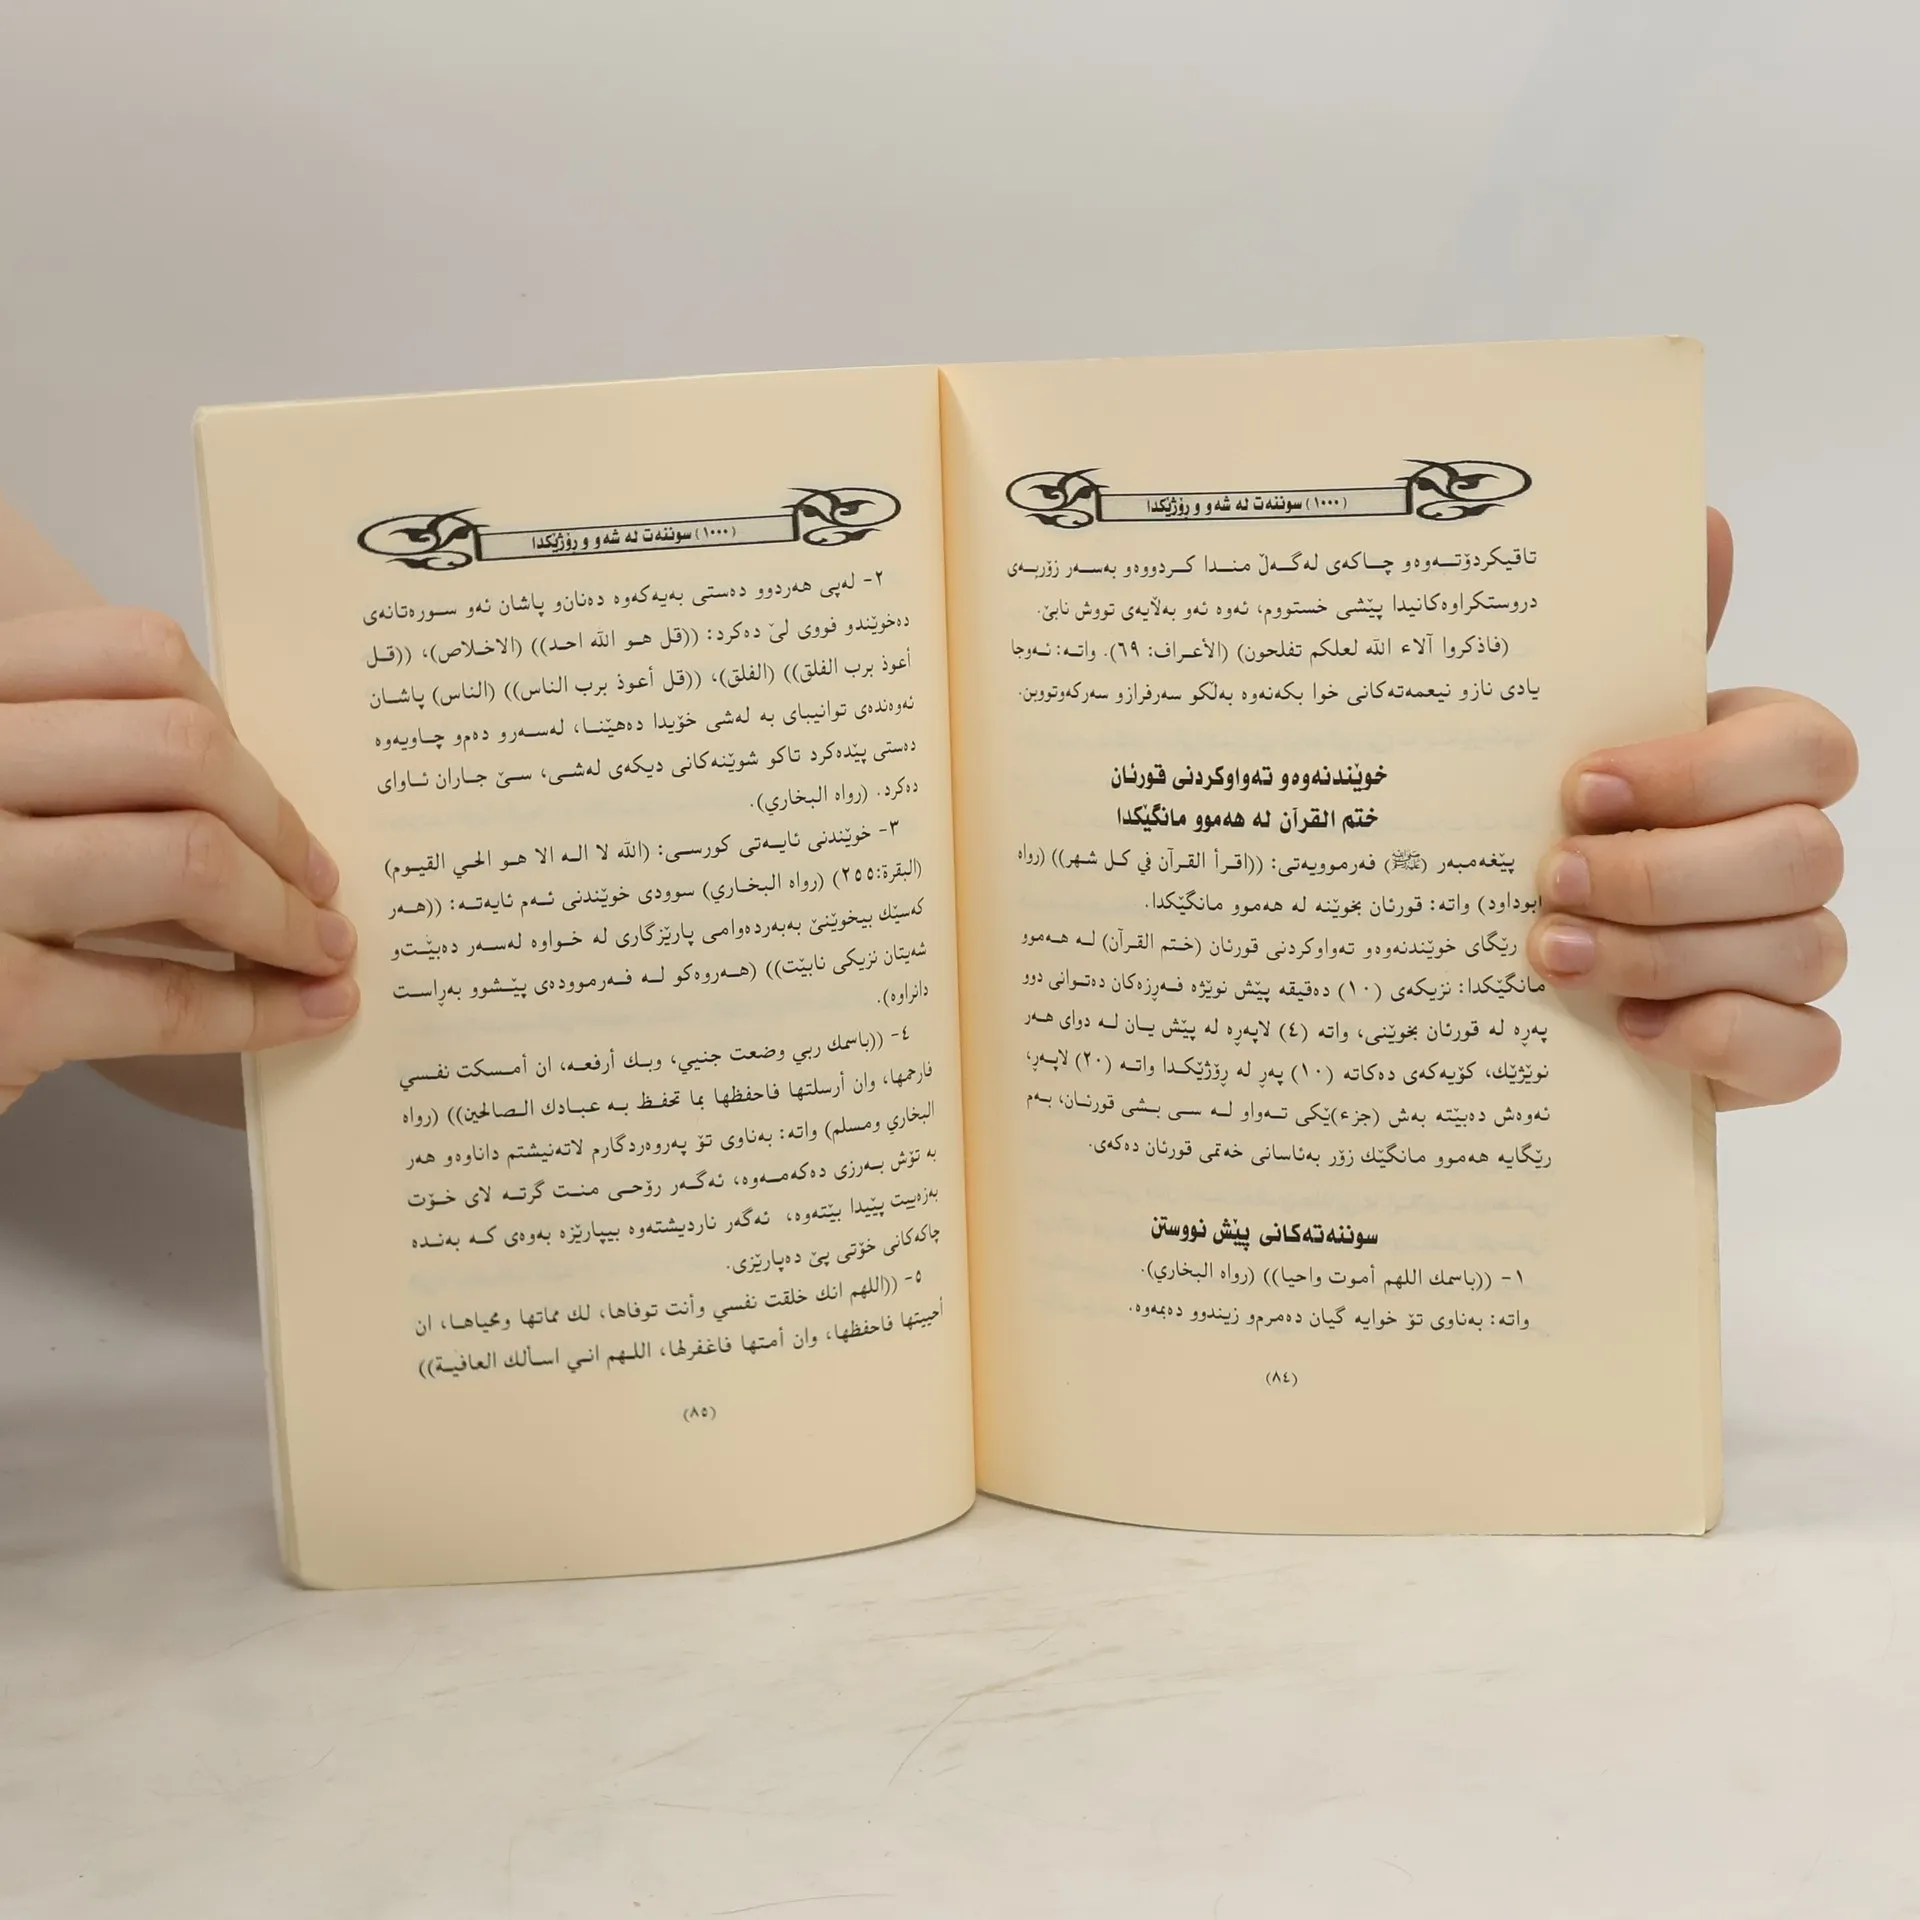 (١٠٠٠) سوننەت لە شەو و رۆژێكدا
تاقیكردۆتەوەو چاكەی لەگەڵ مندا كردووەو بەسەر زۆربەی
دروستكراوەكانیدا پێشی خستووم، ئەوە ئەو بەڵایەی تووش نابێ.
(فاذكروا آلاء الله لعلكم تفلحون) (الأعراف: ٦٩). واتە: ئەوجا
یادی نازو نیعمەتەكانی خوا بكەنەوە بەڵكو سەرفرازو سەركەوتووبن.
خوێندنەوەو تەواوكردنی قورئان
ختم القرآن لە هەموو مانگێكدا
پێغەمبەر (ﷺ) فەرموویەتی: ((اقرأ القرآن في كل شهر)) (رواه
ابوداود) واتە: قورئان بخوێنە لە هەموو مانگێكدا.
رێگای خوێندنەوەو تەواوكردنی قورئان (ختم القرآن) لە هەموو
مانگێكدا: نزیكەی (١٠) دەقیقە پێش نوێژە فەرزەكان دەتوانی دوو
پەڕە لە قورئان بخوێنی، واتە (٤) لاپەڕە لە پێش یان لە دوای هەر
نوێژێك، كۆیەكەی دەكاتە (١٠) پەڕ لە ڕۆژێكدا واتە (٢٠) لاپەڕ،
ئەوەش دەبێتە بەش (جزء)ێكی تەواو لە سی بشی قورئان، بەم
رێگایە هەموو مانگێك زۆر بەئاسانی خەتمی قورئان دەكەی.
سوننەتەكانی پێش نووستن
١- ((باسمك اللهم أموت واحيا)) (رواه البخاري).
واتە: بەناوی تۆ خوایە گیان دەمرم‌و زیندوو دەبمەوە.
(٨٤)
(١٠٠٠) سوننەت لە شەو و رۆژێكدا
٢- لەپی هەردوو دەستی بەیەكەوە دەنان‌و پاشان ئەو سورەتانەی
دەخوێندو فووی لێ دەكرد: ((قل هو الله احد)) (الاخلاص)، ((قل
أعوذ برب الفلق)) (الفلق)، ((قل أعوذ برب الناس)) (الناس) پاشان
ئەوەندەی توانیبای بە لەشی خۆیدا دەهێنا، لەسەرو دەم‌و چاویەوە
دەستی پێدەكرد تاكو شوێنەكانی دیكەی لەشی، سێ جاران ئاوای
دەكرد. (رواه البخاري).
٣- خوێندنی ئایەتی كورسی: (الله لا اله الا هو الحي القيوم)
(البقرة:٢٥٥) (رواه البخاري) سوودی خوێندنی ئەم ئایەتە: ((هەر
كەسێك بیخوێنێ بەبەردەوامی پارێزگاری لە خواوە لەسەر دەبێت‌و
شەیتان نزیكی نابێت)) (هەروەكو لە فەرموودەی پێشوو بەڕاست
دانراوە).
٤- ((باسمك ربي وضعت جنبي، وبك أرفعه، ان أمسكت نفسي
فارحمها، وان أرسلتها فاحفظها بما تحفظ به عبادك الصالحين)) (رواه
البخاري ومسلم) واتە: بەناوی تۆ پەروەردگارم لاتەنیشتم داناوەو هەر
بە تۆش بەرزی دەكەمەوە، ئەگەر رۆحی منت گرتە لای خۆت
بەزەییت پێیدا بێتەوە، ئەگەر ناردیشتەوە بیپارێزە بەوەی كە بەندە
چاكەكانی خۆتی پێ دەپارێزی.
٥- ((اللهم انك خلقت نفسي وأنت توفاها، لك مماتها ومحياها، ان
أحييتها فاحفظها، وان أمتها فاغفرلها، اللهم اني اسألك العافية))
(٨٥)